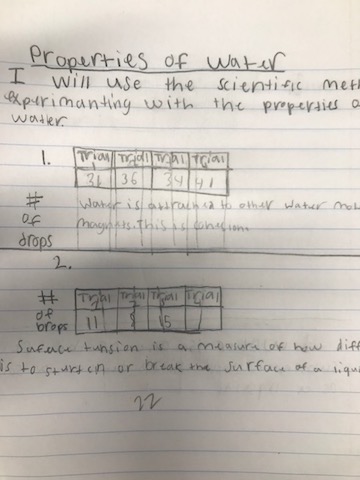 Properties of water
I will use the scientific met
experimanting with the properties o
water.
1.
Trial Trial Trial Trial
31 36 34 41
# of drops
water is attrached to other water mol
magnets. This is cohesion.
2.
Trial Trial Trial Trial
# of brops
11 5
Surface tunsion is a measure of how diff
is to or break the surface of a liqu
22